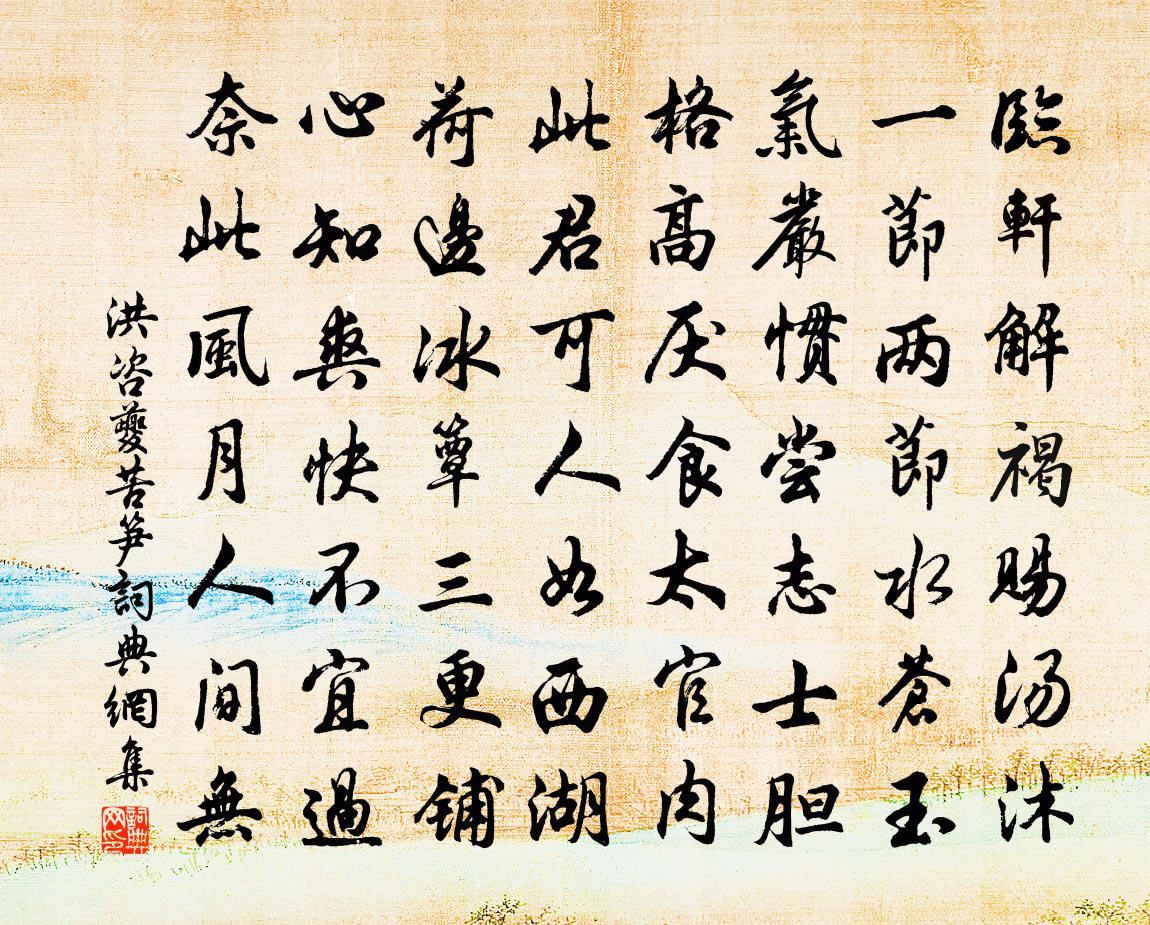 臨軒解褐賜湯沐
一節两節水蒼玉
氣嚴慣嘗志士胆
格高厌食太官肉
此君可人如西湖
荷邊冰簟三更铺
心知爽快不宜過
奈此風月人間無
洪咨夔苦笋詞典網集
詞典网印